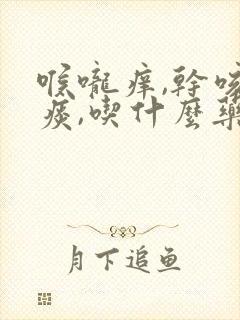 喉嚨癢,幹咳
痰,喫什麼藥
月下追鱼